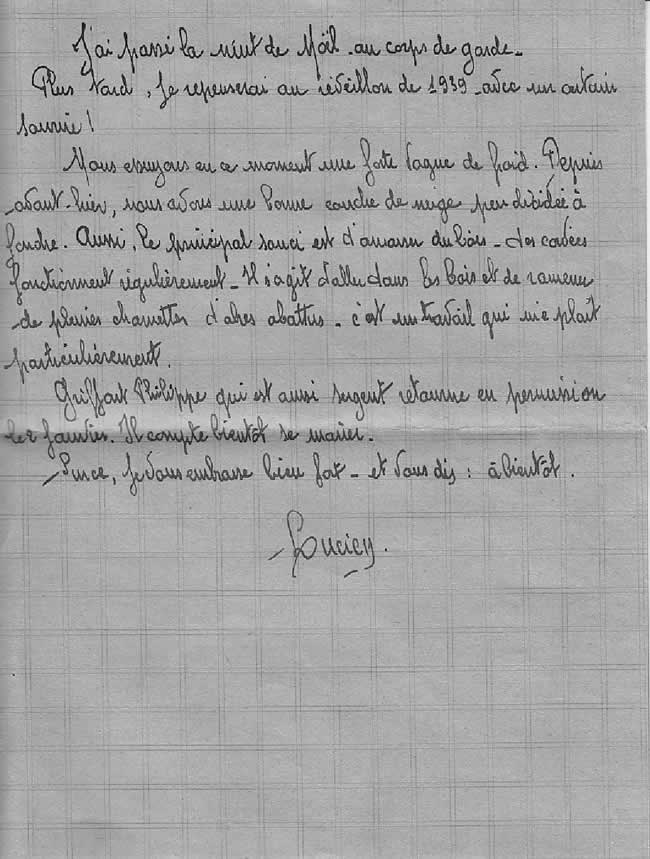 J'ai passé la nuit de Noël au corps de garde.
Plus tard, je repenserai au réveillon de 1939 avec un certain
sourire !
Nous essuyons en ce moment une forte vague de froid. Depuis
avant-hier, nous avons une bonne couche de neige peu décidée à
fondre. Aussi, le principal souci est d'amasser du bois - des corvées
fonctionnent régulièrement - Il s'agit d'aller dans les bois et de ramener
de pleines charrettes d'arbres abattus - c'est un travail qui me plaît
particulièrement.
Philippe qui est aussi sergent retourne en permission
le 2 Janvier. Il compte bientôt se marier.
Sur ce, je vous embrasse bien fort - et vous dis : à bientôt.
Lucien.